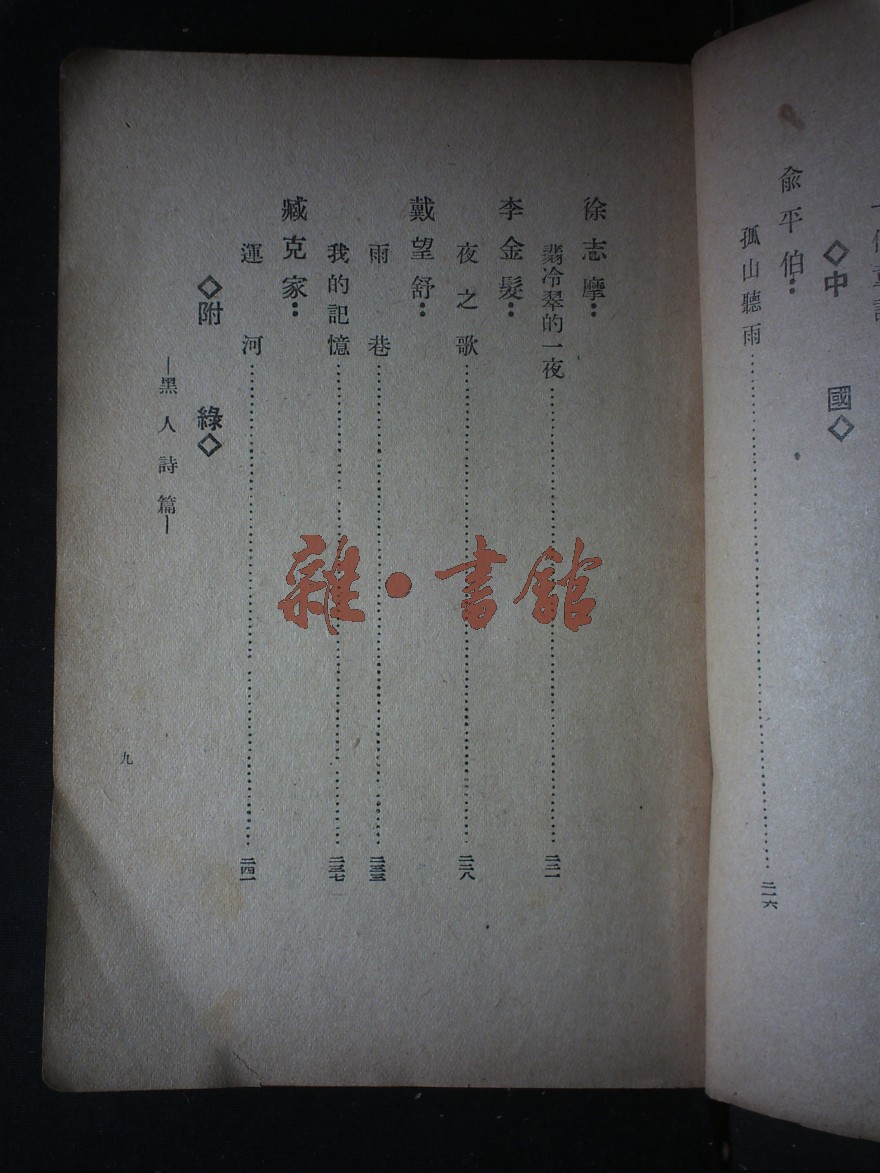 ◇中國◇
俞平伯：
孤山聽雨……二一六
徐志摩：
翡冷翠的一夜……二二一
李金髮：
夜之歌……二二八
戴望舒：
雨巷……二三三
我的記憶……二三七
臧克家：
運河……二四一
◇附綠◇
—黑人詩篇—
九
雜·書館